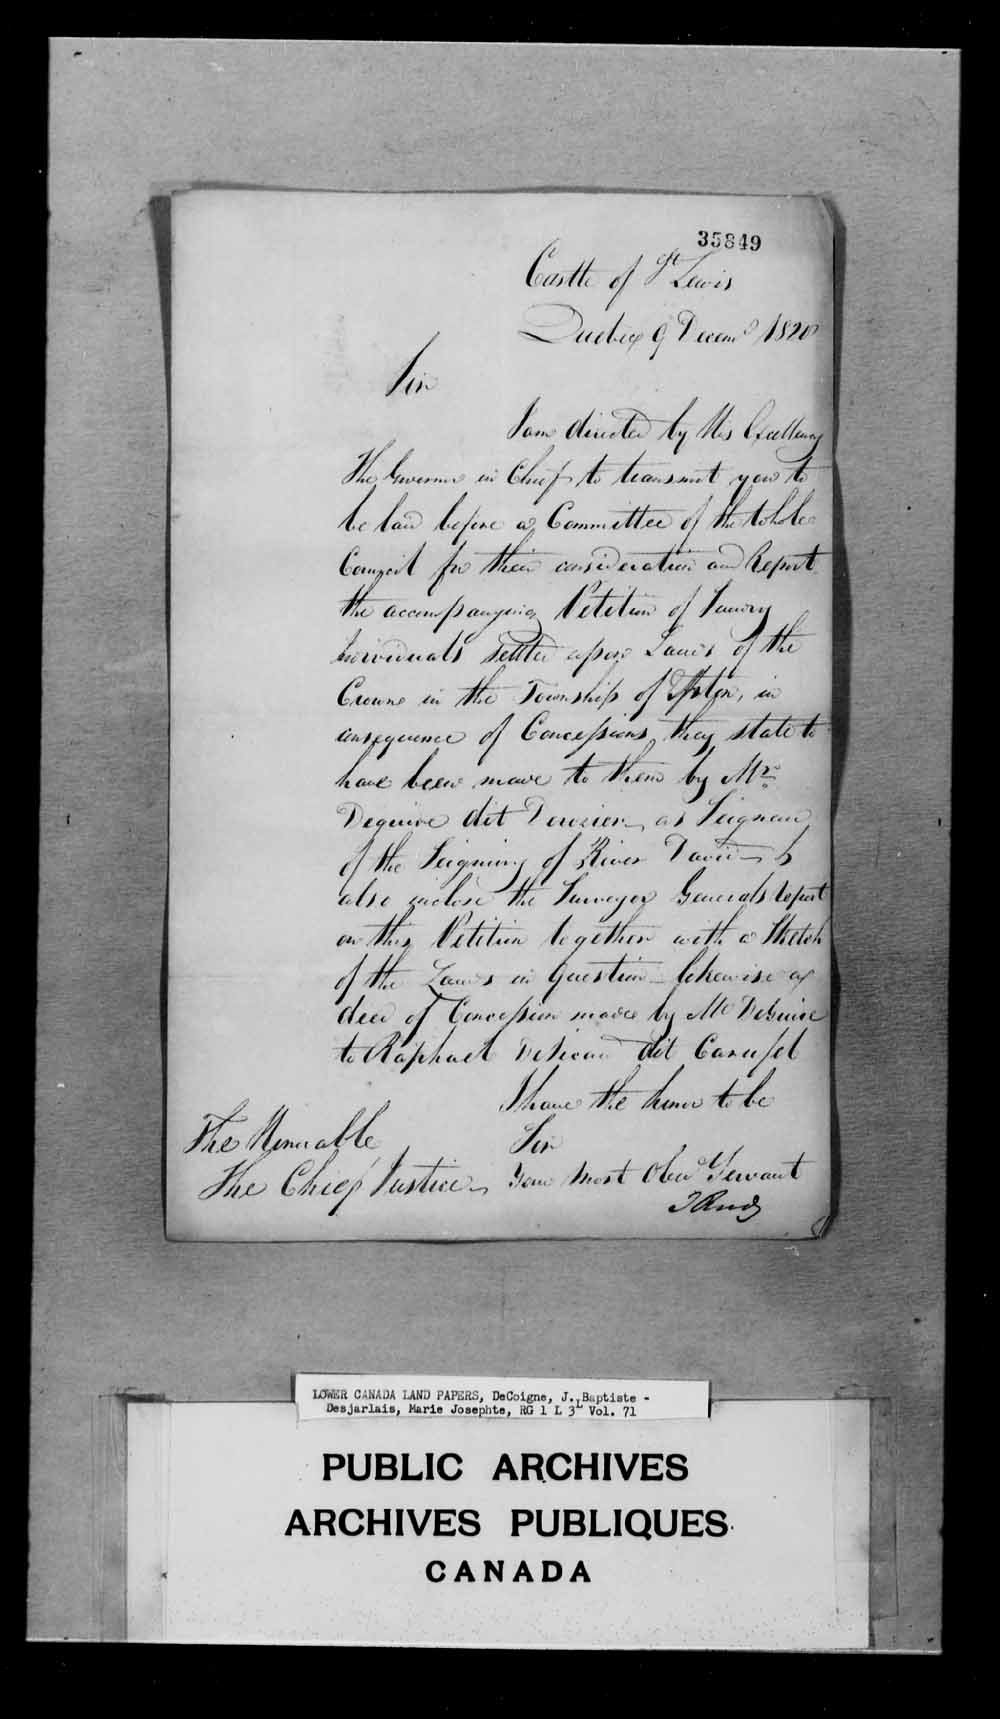 35849
Castle of St Lewis
Quebec 9 Decemr 1820
Sir
I am directed by His Excellency
The Governor in Chief to transmit you to
be laid before a Committee of the whole
Council for their consideration and Report
the accompanying Petition of Sundry
Individuals settled upon Lands of the
Crown in the Township of Upton, in
consequence of Concessions they state to
have been made to them by Mr
Deguire dit Derosier as Seigneur
of the Seigniory of River David I
also inclose the Surveyor Generals report
on this Petition together with a Sketch
of the Lands in Question likewise a
deed of Concession made by Mr DeGuire
to Raphael dit
I have the honor to be
Sir
Your Most Obedt Servant
The Honorable
The Chief Justice
LOWER CANADA LAND PAPERS, DeCoigne, J. Baptiste -
Desjarlais, Marie Josephte, RG 1 L 3L Vol. 71
PUBLIC ARCHIVES
ARCHIVES PUBLIQUES
CANADA